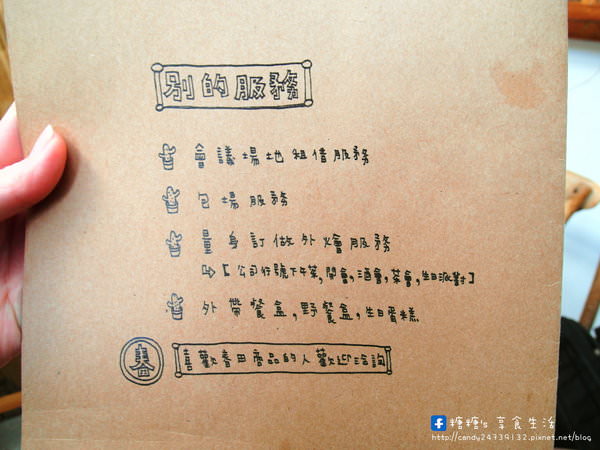 別的服務
會議場地租借服務
包場服務
量身訂做外燴服務
[公司行號下午茶,開會,酒會,茶會,生日派對]
外帶餐盒,野餐盒,生日蛋糕
喜歡春田商品的人歡迎洽詢
糖糖's 享食生活
http://candy24739132.pixnet.net/blog